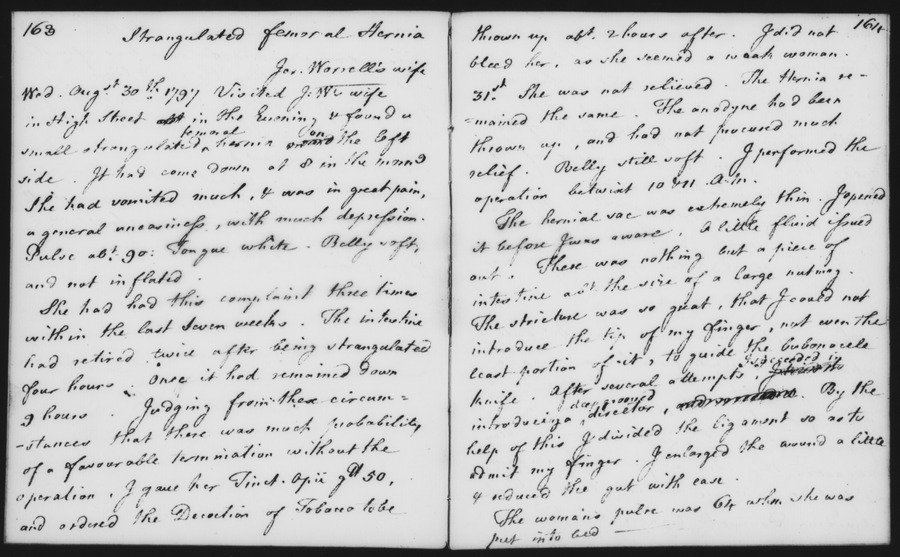 163
Strangulated femoral Hernia
Jas. Worrell's wife
Wed. Augst 30th 1797 Visited J: Ws wife
in High Street in the Evening & found a
small strangulated femoral hernia on the left
side. It had come down at 8 in the morng
She had vomited much, & was in great pain,
a general uneasiness, with much depression.
Pulse abt. 90: Tongue white. Belly soft,
and not inflated.
She had had this complaint three times
within the last seven weeks. The intestine
had retired twice after being strangulated
four hours. Once it had remained down
9 hours. Judging from these circum=
=stances that there was much probability
of a favourable termination without the
operation, I gave her Tinct. Opii gtt 50,
and ordered the Decoction of Tobacco to be
164
thrown up abt. 2 hours after. I did not
bleed her, as she seemed a weak woman.
31st. She was not relieved. The Hernia re-
=mained the same. The anodyne had been
thrown up, and had not procured much
relief. Belly still soft. I performed the
operation betwixt 10 & 11 A.M.
The hernial sac was extremely thin. I opened
it before I was aware. A little fluid issued
out. There was nothing but a piece of
intestine abt the size of a large nutmeg.
The stricture was so great, that I could not
introduce the tip of my finger, not even the
least portion of it, to guide the bubonocele
knife. After several attempts I succeeded in
introducing a deep grooved director, . By the
help of this I divided the ligament so as to
admit my finger. I enlarged the wound a little
& reduced the gut with ease.
The woman's pulse was 64 when she was
put into bed